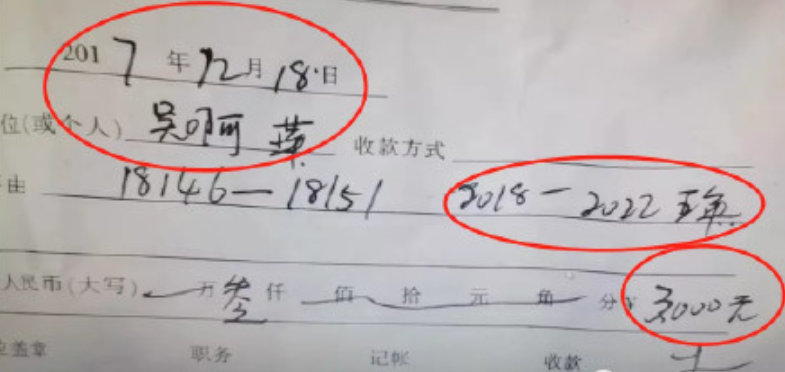 2017年12月18日
位(或个人) 吴阿燕 收款方式
由 18146—18151 2018—2022 五年
人民币(大写) 万叁仟 佰 拾 元 角 分¥3000元
盖章 职务 记帐 收款